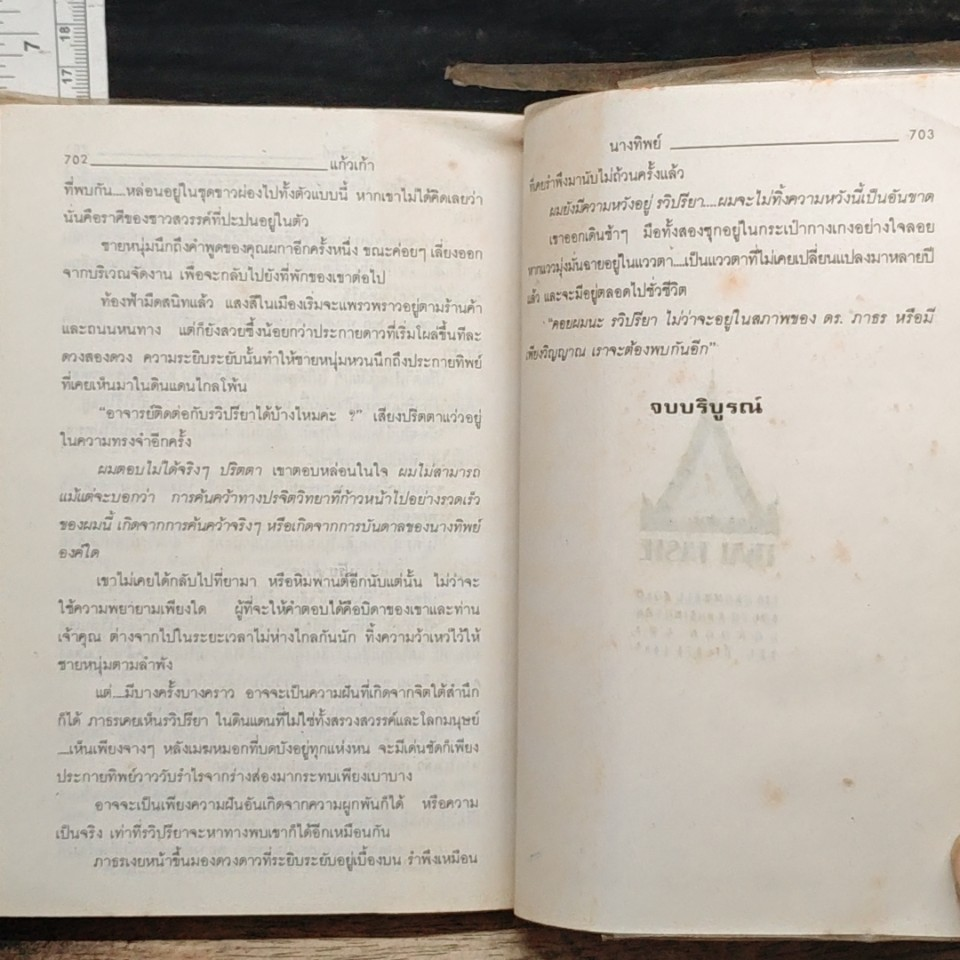 7
18
17
702 แก้วเก้า
ที่พบกัน....หล่อนอยู่ในชุดขาวผ่องไปทั้งตัวแบบนี้ หากเขาไม่ได้คิดเลยว่า
นั่นคือราศีของชาวสวรรค์ที่ปะปนอยู่ในตัว
ชายหนุ่มนึกถึงคำพูดของคุณผกาอีกครั้งหนึ่ง ขณะค่อยๆ เลี่ยงออก
จากบริเวณจัดงาน เพื่อจะกลับไปยังที่พักของเขาต่อไป
ท้องฟ้ามืดสนิทแล้ว แสงสีในเมืองเริ่มจะแพรวพราวอยู่ตามร้านค้า
และถนนหนทาง แต่ก็ยังสวยซึ้งน้อยกว่าประกายดาวที่เริ่มโผล่ขึ้นทีละ
ดวงสองดวง ความระยิบระยับนั้นทำให้ชายหนุ่มหวนนึกถึงประกายทิพย์
ที่เคยเห็นมาในดินแดนไกลโพ้น
"อาจารย์ติดต่อกับรวิปรียาได้บ้างไหมคะ ?" เสียงปริตตาแว่วอยู่
ในความทรงจำอีกครั้ง
ผมตอบไม่ได้จริงๆ ปริตตา เขาตอบหล่อนในใจ ผมไม่สามารถ
แม้แต่จะบอกว่า การค้นคว้าทางปรจิตวิทยาที่ก้าวหน้าไปอย่างรวดเร็ว
ของผมนี้ เกิดจากการค้นคว้าจริงๆ หรือเกิดจากการบันดาลของนางทิพย์
องค์ใด
เขาไม่เคยได้กลับไปที่ยามา หรือหิมพานต์อีกนับแต่นั้น ไม่ว่าจะ
ใช้ความพยายามเพียงใด ผู้ที่จะให้คำตอบได้คือบิดาของเขาและท่าน
เจ้าคุณ ต่างจากไปในระยะเวลาไม่ห่างไกลกันนัก ทิ้งความว้าเหว่ไว้ให้
ชายหนุ่มตามลำพัง
แต่....มีบางครั้งบางคราว อาจจะเป็นความฝันที่เกิดจากจิตใต้สำนึก
ก็ได้ ภาธรเคยเห็นรวิปรียา ในดินแดนที่ไม่ใช่ทั้งสรวงสวรรค์และโลกมนุษย์
....เห็นเพียงจางๆ หลังเมฆหมอกที่บดบังอยู่ทุกแห่งหน จะมีเด่นชัดก็เพียง
ประกายทิพย์วาววับรำไรจากร่างส่องมากระทบเพียงเบาบาง
อาจจะเป็นเพียงความฝันอันเกิดจากความผูกพันก็ได้ หรือความ
เป็นจริง เท่าที่รวิปรียาจะหาทางพบเขาก็ได้อีกเหมือนกัน
ภาธรเงยหน้าขึ้นมองดวงดาวที่ระยิบระยับอยู่เบื้องบน รำพึงเหมือน
นางทิพย์ 703
ที่เคยรำพึงมานับไม่ถ้วนครั้งแล้ว
ผมยังมีความหวังอยู่ รวิปรียา....ผมจะไม่ทิ้งความหวังนี้เป็นอันขาด
เขาออกเดินช้าๆ มือทั้งสองซุกอยู่ในกระเป๋ากางเกงอย่างใจลอย
หากแววมุ่งมั่นฉายอยู่ในแววตา....เป็นแววตาที่ไม่เคยเปลี่ยนแปลงมาหลายปี
แล้ว และจะมีอยู่ตลอดไปชั่วชีวิต
"คอยผมนะ รวิปรียา ไม่ว่าจะอยู่ในสภาพของ ดร. ภาธร หรือมี
เพียงวิญญาณ เราจะต้องพบกันอีก"
จบบริบูรณ์